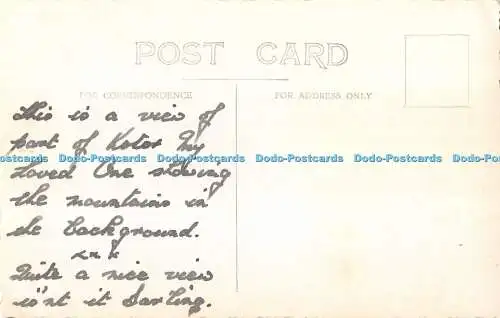 POST CARD
FOR CORRESPONDENCE
FOR ADDRESS ONLY
This is a view of
part of Kotor My
Loved One showing
the mountains in
the background.
x x x
Quite a nice view
is'nt it Darling.
Dodo-Postcards Dodo-Postcards Dodo-Postcards Dodo-Postcards Dodo-Postcards